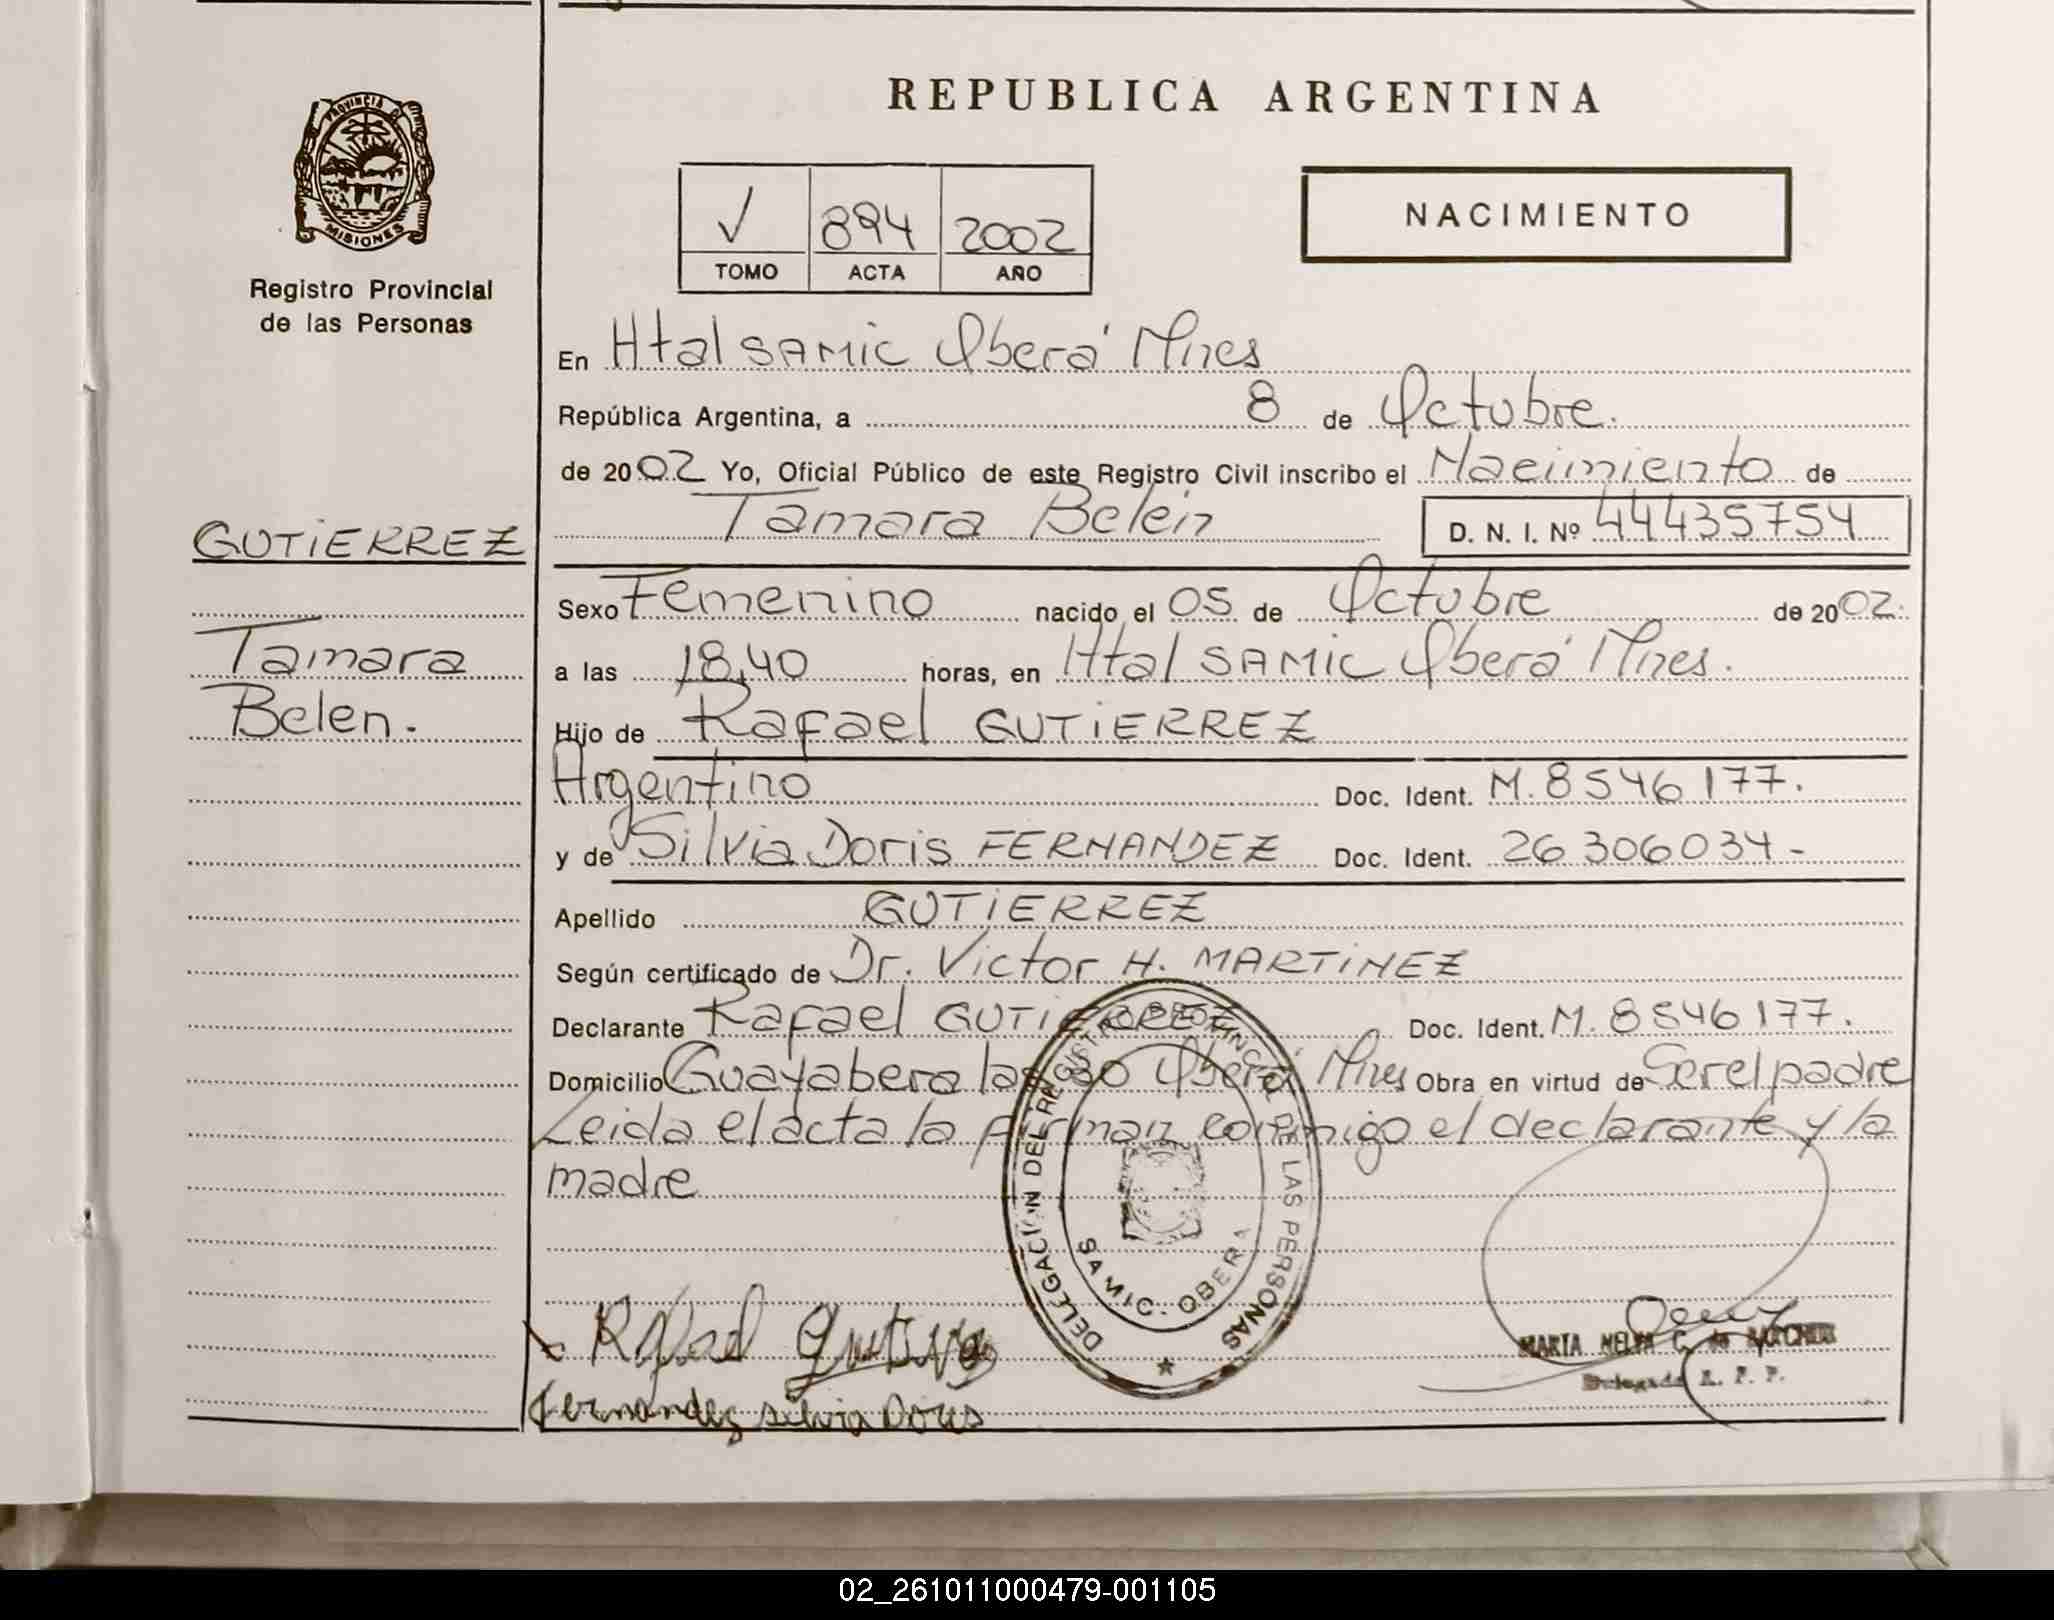 PROVINCIA D
MISIONES
Registro Provincial
de las Personas
GUTIERREZ
Tamara
Belen.
REPUBLICA ARGENTINA
V 894 2002
TOMO ACTA AÑO
NACIMIENTO
En Htal SAMIC Oberá Mnes
República Argentina, a 8 de Octubre.
de 2002 Yo, Oficial Público de este Registro Civil inscribo el Nacimiento de
Tamara Belén D. N. I. Nº 44435754
Sexo Femenino nacido el 05 de Octubre de 2002.
a las 18,40 horas, en Htal SAMIC Oberá Mnes.
Hijo de Rafael GUTIERREZ
Argentino Doc. Ident. M. 8546177.
y de Silvia Doris FERNANDEZ Doc. Ident. 26306034-
Apellido GUTIERREZ
Según certificado de Dr. Victor H. MARTINEZ
Declarante Rafael GUTIERREZ Doc. Ident. M. 8546177.
Domicilio Guayabera Oberá Mnes Obra en virtud de Ser el padre
Leida el acta la firman conmigo el declarante y la
madre
DELEGACION DEL REGISTRO PROVINCIAL DE LAS PERSONAS
SAMIC - OBERA
Rafael Gutierrez
MARTA C. de
Delegada R. P. P.
Fernandez silvia Doris
02_261011000479-001105